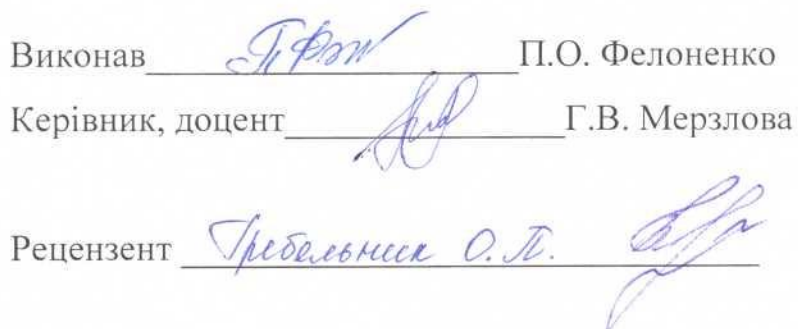 Виконав П.О. Фелоненко
Керівник, доцент Г.В. Мерзлова
Рецензент Гребельник О.П.